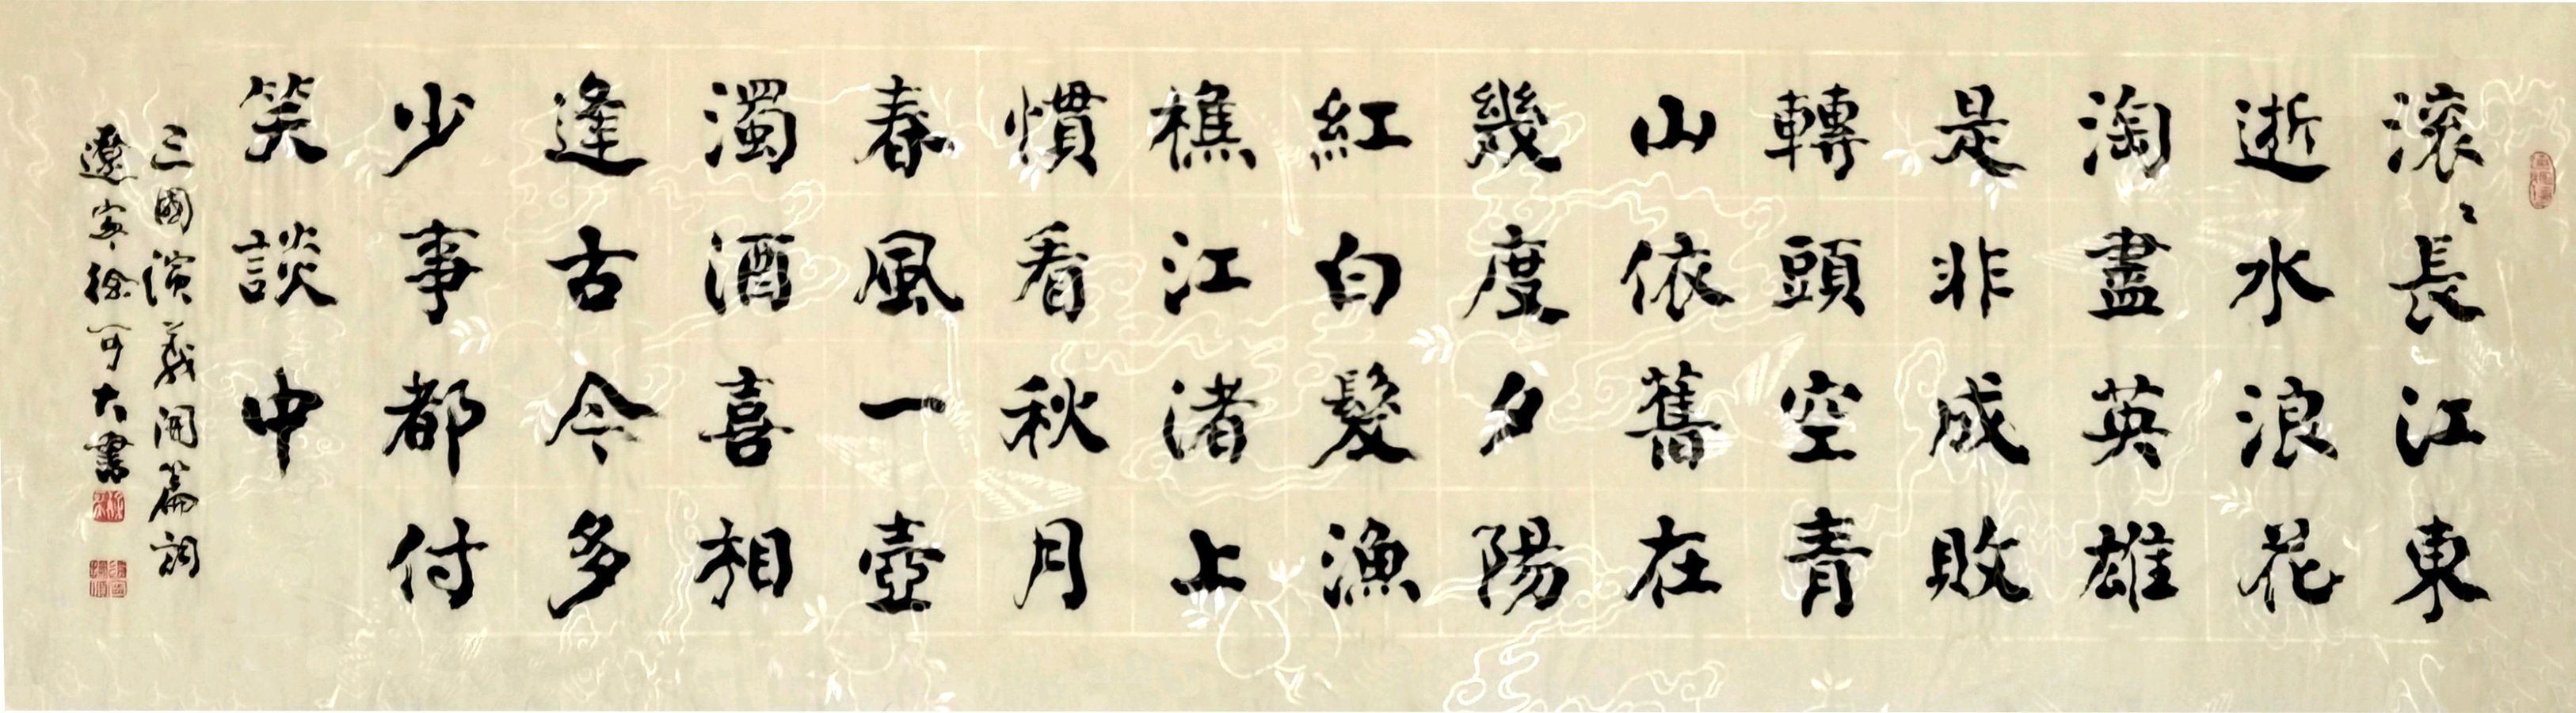 滚〻長江東
逝水浪花
淘盡英雄
是非成敗
轉頭空青
山依舊在
幾度夕陽
紅白髮漁
樵江渚上
慣看秋月
春風一壺
濁酒喜相
逢古今多
少事都付
笑談中
三國演義開篇詞
遼寧徐可大書